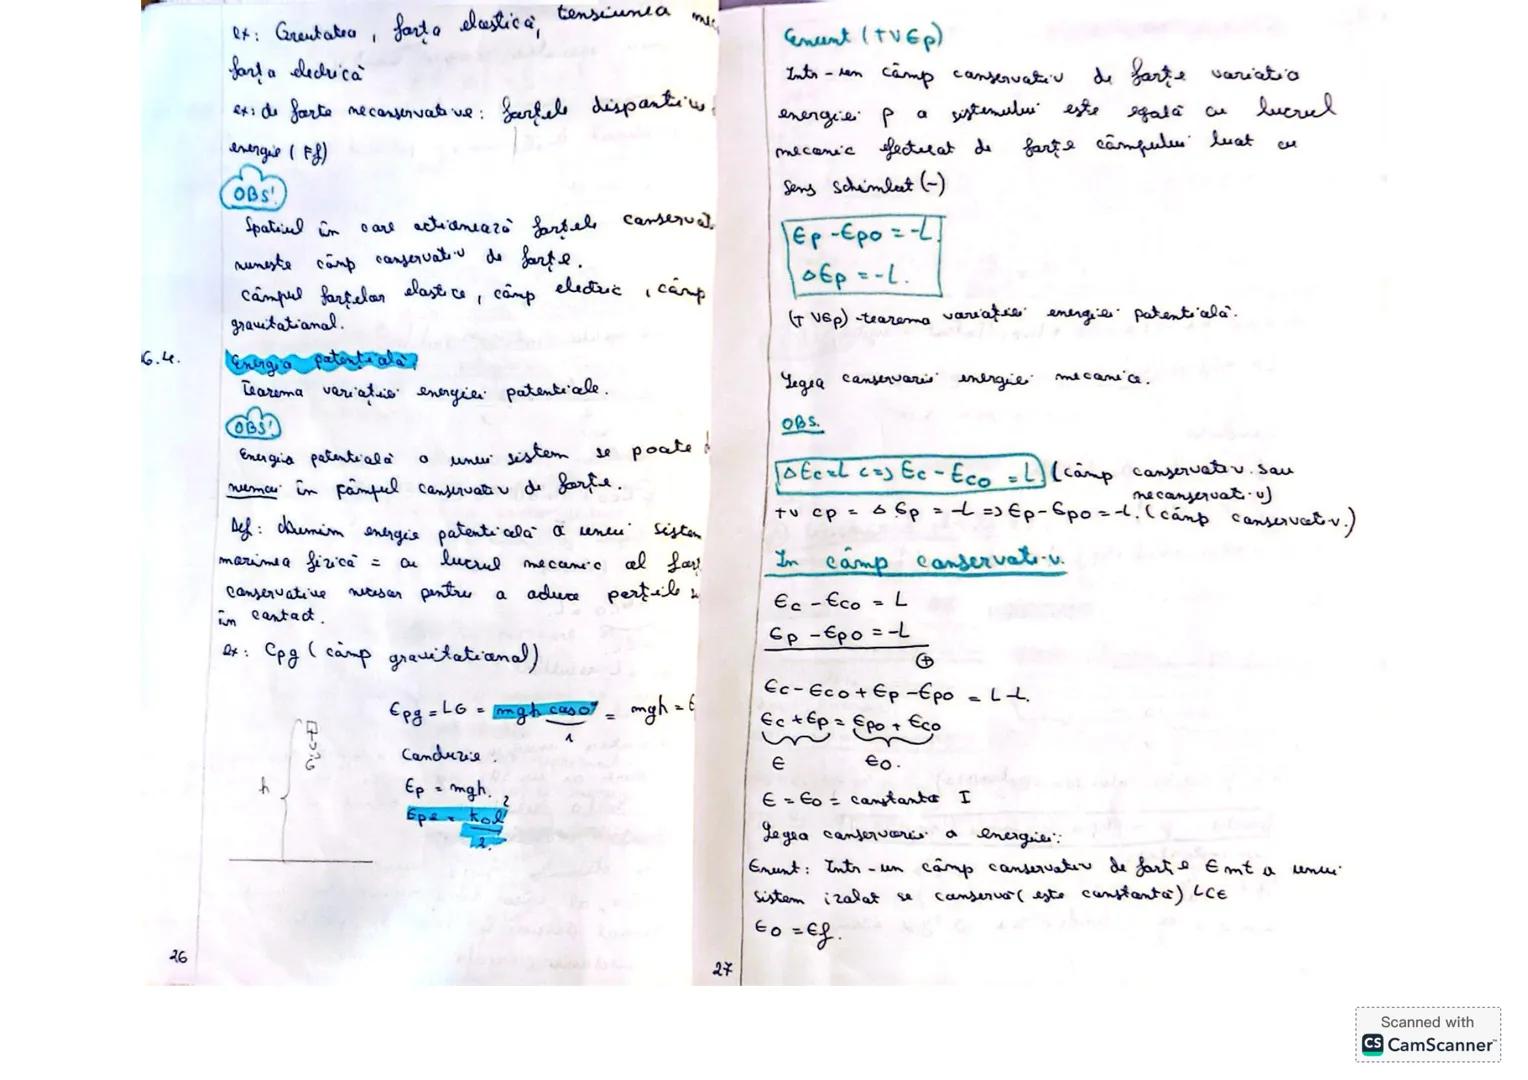 ex: Greutatea, forța elastică, tensiunea mec
forța electrică
ex: de forțe neconservative: forțele
energie (Ff)
OBS!
Spațiul în care acționează forțele conservat
numește câmp conservativ de forțe.
câmpul forțelor elastice, câmp electric, câmp
gravitațional.
6.4.
Energia potențială;
Teorema variației energiei potențiale.
OBS!
Energia potențială a unui sistem se poate
numai în câmpul conservativ de forțe.
Def: denumim energie potențială a unui sistem
mărimea fizică = cu lucrul mecanic al forț
conservative necesar pentru a aduce părțile
în contact.
ex: Epg (câmp gravitațional)
Epg = LG = mgh cos 0° = mgh = E
1
Concluzie.
h
G
Ep = mgh.
Epe = kΔl²
2.
26
Enunț (TVEp)
Într-un câmp conservativ de forțe variația
energiei p a sistemului este egală cu lucrul
mecanic efectuat de forțe câmpului luat cu
sens schimbat (-)
Ep - Epo = -L.
ΔEp = -L.
(TVEp) - teorema variației energiei potențială.
Legea conservarii energiei mecanica.
OBS.
ΔEc=L <=> Ec - Eco = L (câmp conservativ sau
neconservativ)
tv cp = ΔEp = -L => Ep-Epo = -L. (câmp conservativ.)
În câmp conservativ.
Ec - Eco = L
Ep - Epo = -L
+
Ec - Eco + Ep - Epo = L-L.
Ec + Ep = Epo + Eco
E Eo.
E = Eo = constanta I
Legea conservarii a energiei:
Enunt: Într-un câmp conservativ de forțe Emt a unui
sistem izolat se conservă (este constantă) LCE
Eo = Ef.
27
Scanned with
CS CamScanner